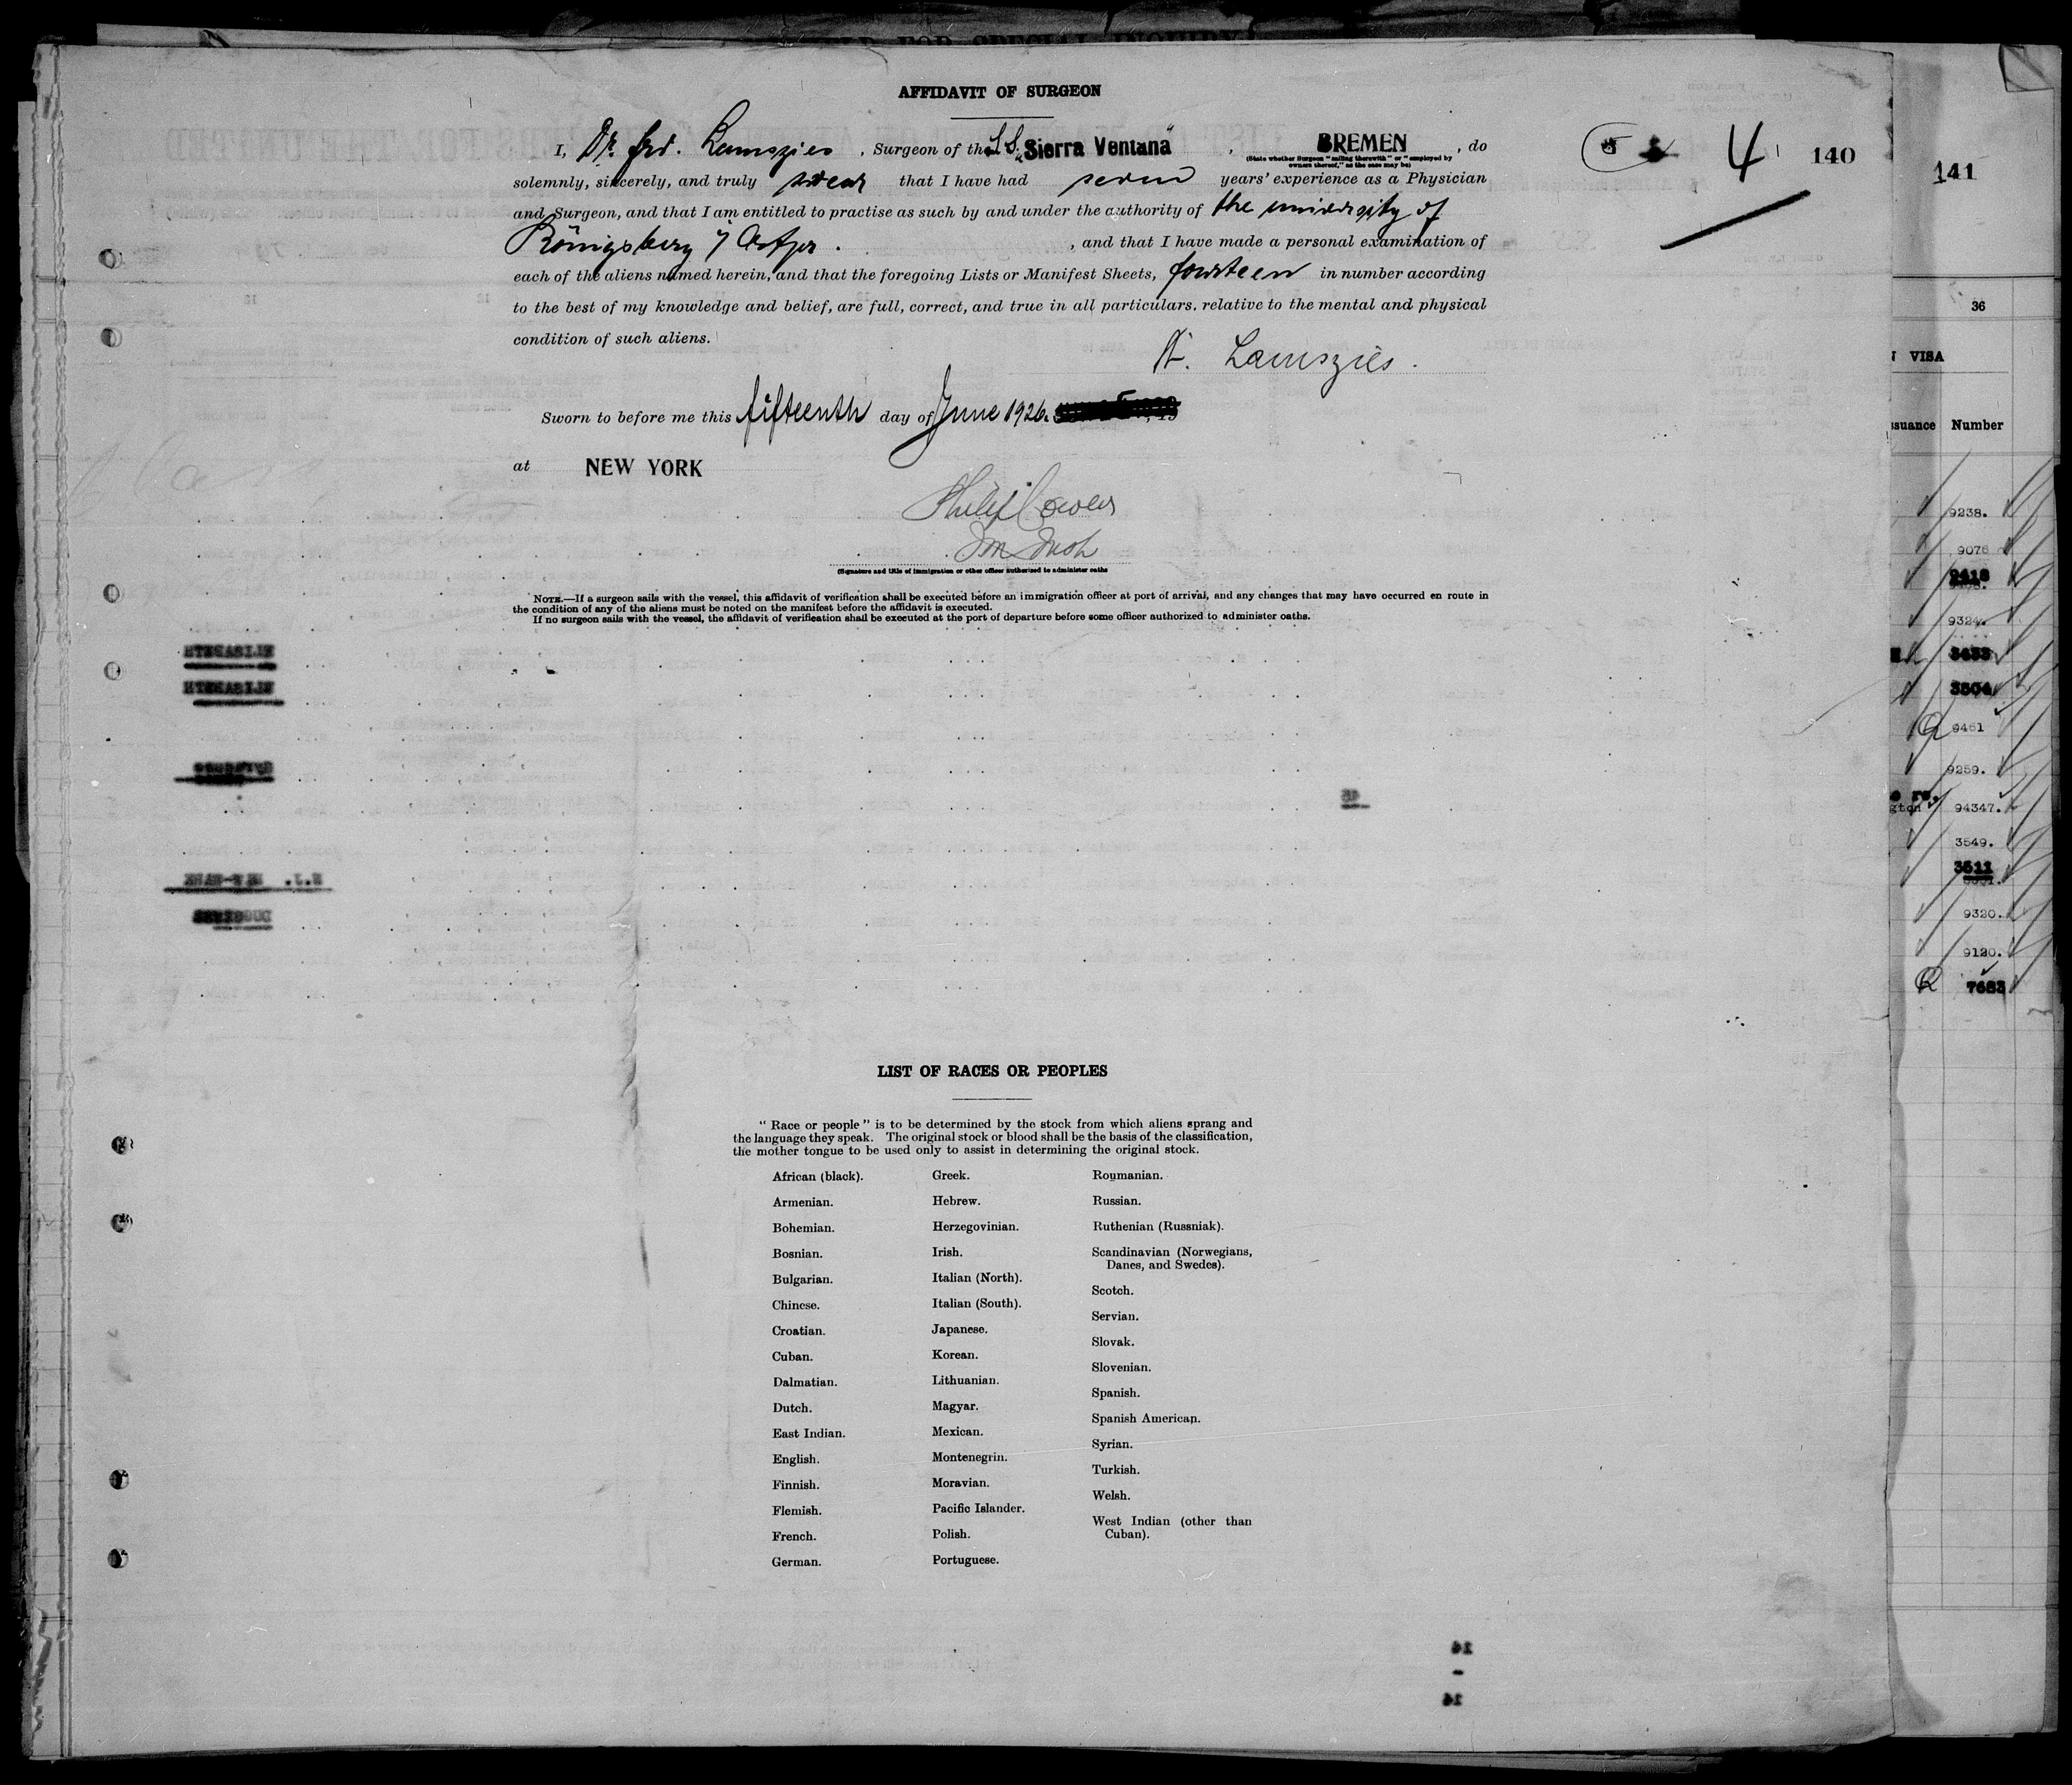 AFFIDAVIT OF SURGEON
I, Dr. , Surgeon of the S.S. "Sierra Ventana" , BREMEN , do
(State whether Surgeon "sailing therewith" or "employed by
owners thereof," as the case may be)
solemnly, sincerely, and truly swear that I have had seven years' experience as a Physician
and Surgeon, and that I am entitled to practise as such by and under the authority of the university of
Königsberg , and that I have made a personal examination of
each of the aliens named herein, and that the foregoing Lists or Manifest Sheets, fourteen in number according
to the best of my knowledge and belief, are full, correct, and true in all particulars. relative to the mental and physical
condition of such aliens.
Lamszies.
Sworn to before me this fifteenth day of June 1926.
at NEW YORK
Philip Cowen
(Signature and title of immigration or other officer authorized to administer oaths
NOTE.—If a surgeon sails with the vessel, this affidavit of verification shall be executed before an immigration officer at port of arrival, and any changes that may have occurred en route in
the condition of any of the aliens must be noted on the manifest before the affidavit is executed.
If no surgeon sails with the vessel, the affidavit of verification shall be executed at the port of departure before some officer authorized to administer oaths.
4 140
141
36
VISA
Number
9238.
9076
2418
9324.
3433
3504
9461
9259.
94347.
3549.
3511
9320.
9120.
7683
LIST OF RACES OR PEOPLES
"Race or people" is to be determined by the stock from which aliens sprang and
the language they speak. The original stock or blood shall be the basis of the classification,
the mother tongue to be used only to assist in determining the original stock.
African (black).
Armenian.
Bohemian.
Bosnian.
Bulgarian.
Chinese.
Croatian.
Cuban.
Dalmatian.
Dutch.
East Indian.
English.
Finnish.
Flemish.
French.
German.
Greek.
Hebrew.
Herzegovinian.
Irish.
Italian (North).
Italian (South).
Japanese.
Korean.
Lithuanian.
Magyar.
Mexican.
Montenegrin.
Moravian.
Pacific Islander.
Polish.
Portuguese.
Roumanian.
Russian.
Ruthenian (Russniak).
Scandinavian (Norwegians,
Danes, and Swedes).
Scotch.
Servian.
Slovak.
Slovenian.
Spanish.
Spanish American.
Syrian.
Turkish.
Welsh.
West Indian (other than
Cuban).